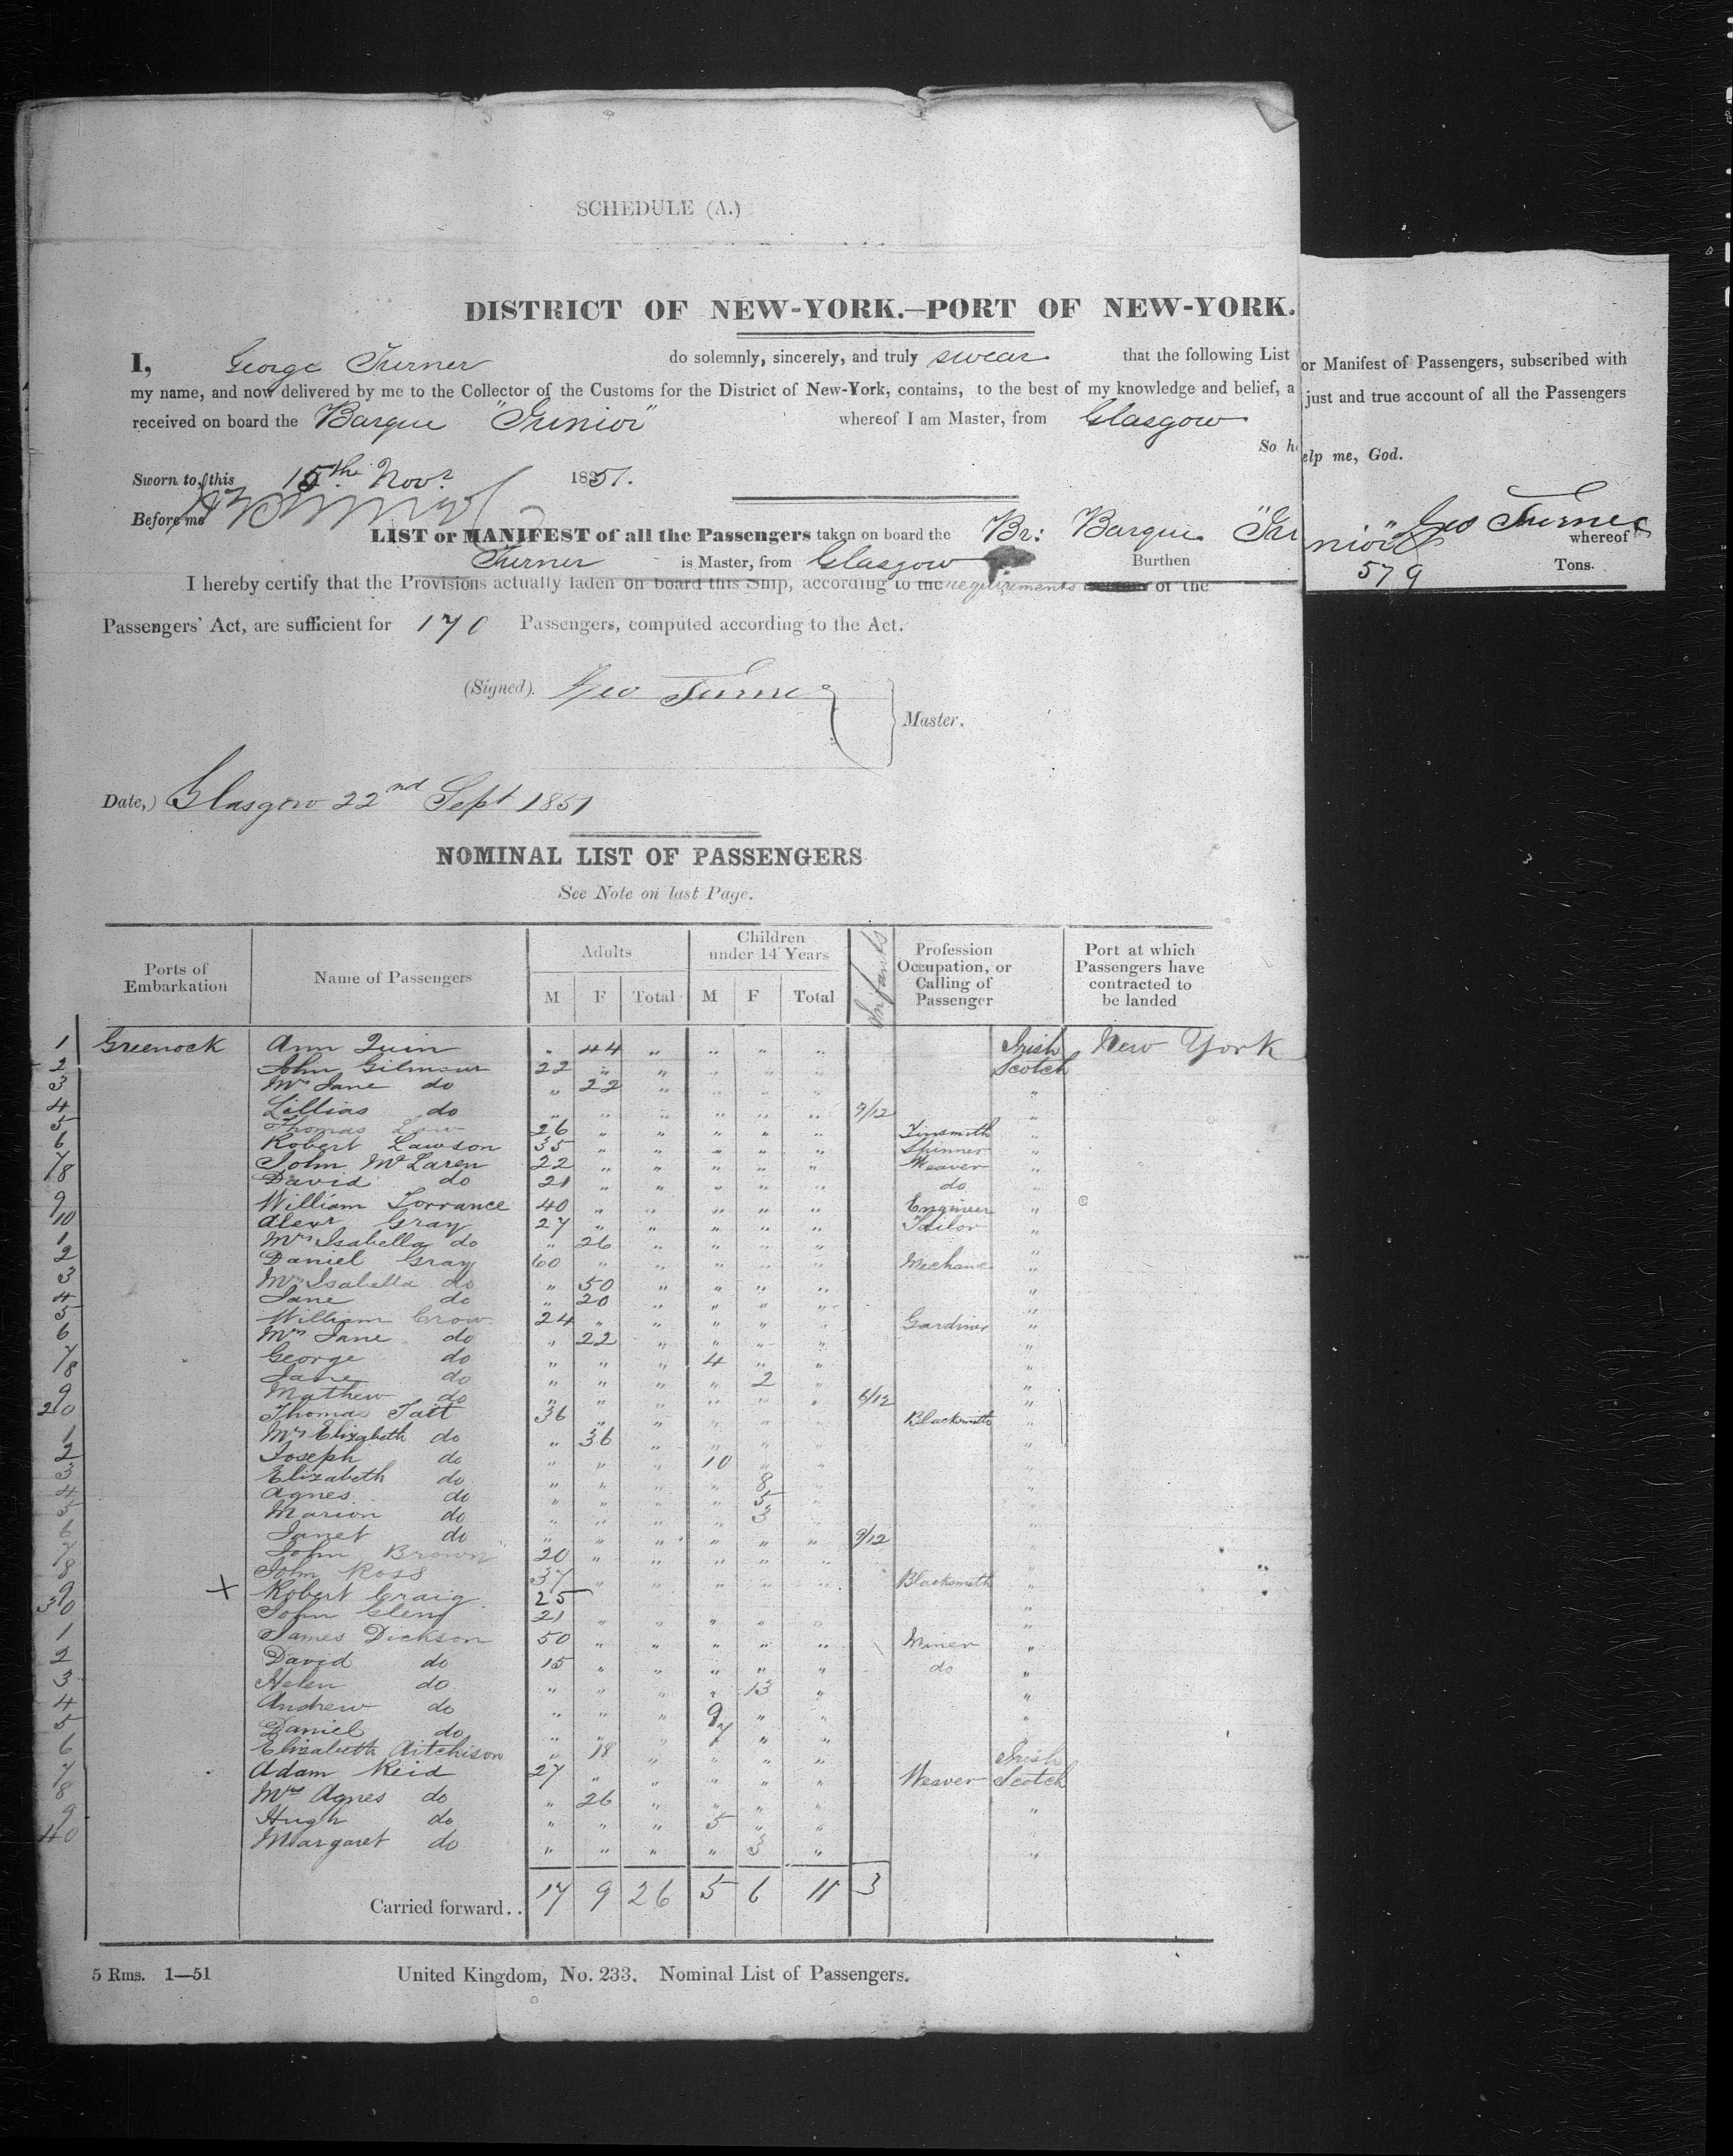 SCHEDULE (A.)
DISTRICT OF NEW-YORK.—PORT OF NEW-YORK.
I, George Turner do solemnly, sincerely, and truly swear that the following List or Manifest of Passengers, subscribed with
my name, and now delivered by me to the Collector of the Customs for the District of New-York, contains, to the best of my knowledge and belief, a just and true account of all the Passengers
received on board the Barque "Junior" whereof I am Master, from Glasgow
So help me, God.
Sworn to, this 15th Novr 1851.
Geo Turner
Before me
LIST or MANIFEST of all the Passengers taken on board the Br: Barque "Junior" whereof
Turner is Master, from Glasgow Burthen 579 Tons.
I hereby certify that the Provisions actually laden on board this Ship, according to the requirements of the
Passengers' Act, are sufficient for 170 Passengers, computed according to the Act.
(Signed) Geo Turner
Master.
Date,) Glasgow 22nd Sept 1851
NOMINAL LIST OF PASSENGERS
See Note on last Page.
Ports of Embarkation Name of Passengers Adults M F Total Children under 14 Years M F Total Infants Profession Occupation, or Calling of Passenger Port at which Passengers have contracted to be landed
1 Greenock Ann Quin " 44 " " " " Irish New York
2 John Gilmour 22 " " " " " Scotch
3 Mrs Jane do " 22 " " " " "
4 Lillias do " " " " " " 9/12 "
5 Thomas Law 26 " " " " " Tinsmith "
6 Robert Lawson 35 " " " " " Spinner "
7 John McLaren 22 " " " " " Weaver "
8 David do 21 " " " " " do "
9 William Torrance 40 " " " " " Engineer "
10 Alexr Gray 27 " " " " " Tailor "
1 Mrs Isabella do " 26 " " " " "
2 Daniel Gray 60 " " " " " Mechanic "
3 Mrs Isabella do " 50 " " " " "
4 Jane do " 20 " " " " "
5 William Crow 24 " " " " " Gardiner "
6 Mrs Jane do " 22 " " " " "
7 George do " " " 4 " " "
8 Jane do " " " " 2 " "
9 Mathew do " " " " " " 6/12 "
20 Thomas Tait 36 " " " " " Blacksmith "
1 Mrs Elizabeth do " 36 " " " " "
2 Joseph do " " " 10 " " "
3 Elizabeth do " " " " 8 " "
4 Agnes do " " " " 5 " "
5 Marion do " " " " 3 " "
6 Janet do " " " " " " 9/12 "
7 John Brown 20 " " " " " "
8 John Ross 37 " " " " " Blacksmith "
9 X Robert Craig 25 "
30 John Glen 21 " " " " " "
1 James Dickson 50 " " " " " Miner "
2 David do 15 " " " " " do "
3 Helen do " " " " 13 " "
4 Andrew do " " " 9 " " "
5 Daniel do " " " 7 " "
6 Elizabeth Aitchison " 18 " " " " Irish
7 Adam Reid 27 " " " " " Weaver Scotch
8 Mrs Agnes do " 26 " " " " "
9 Hugh do " " " 5 " " "
40 Margaret do " " " " 3 " "
Carried forward.. 17 9 26 5 6 11 3
5 Rms. 1—51 United Kingdom, No. 233. Nominal List of Passengers.